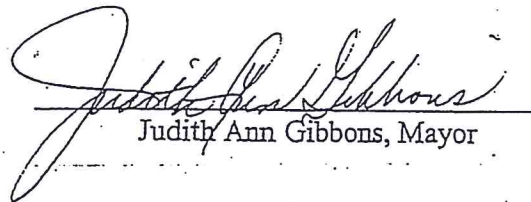 Judith Ann Gibbons
Judith Ann Gibbons, Mayor